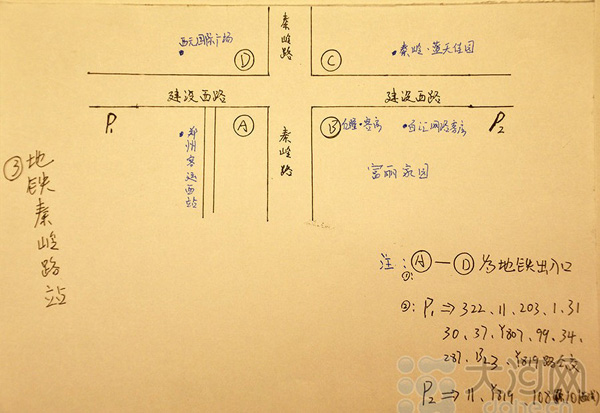 秦岭路
西元国际广场
D
C
秦岭·蓝天佳园
建设西路
建设西路
P1
A
B
百汇网络宾房
P2
郑州客运西站
秦岭路
富丽家园
③地铁秦岭路站
注:①:A—D为地铁出入口
②:P1⇒322、11、203、1、31
30、37、Y807、99、34、
287、B23、Y819路公交
P2⇒11、Y819、108
大河网